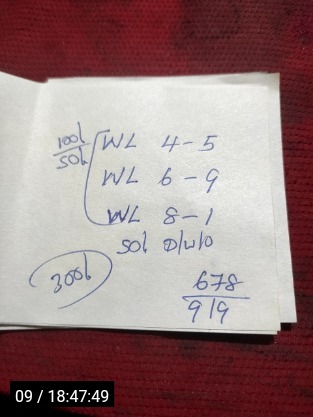 100b/50b WL 4-5
WL 6-9
WL 8-1
50b D/W/O
300b
678
919
09 / 18:47:49